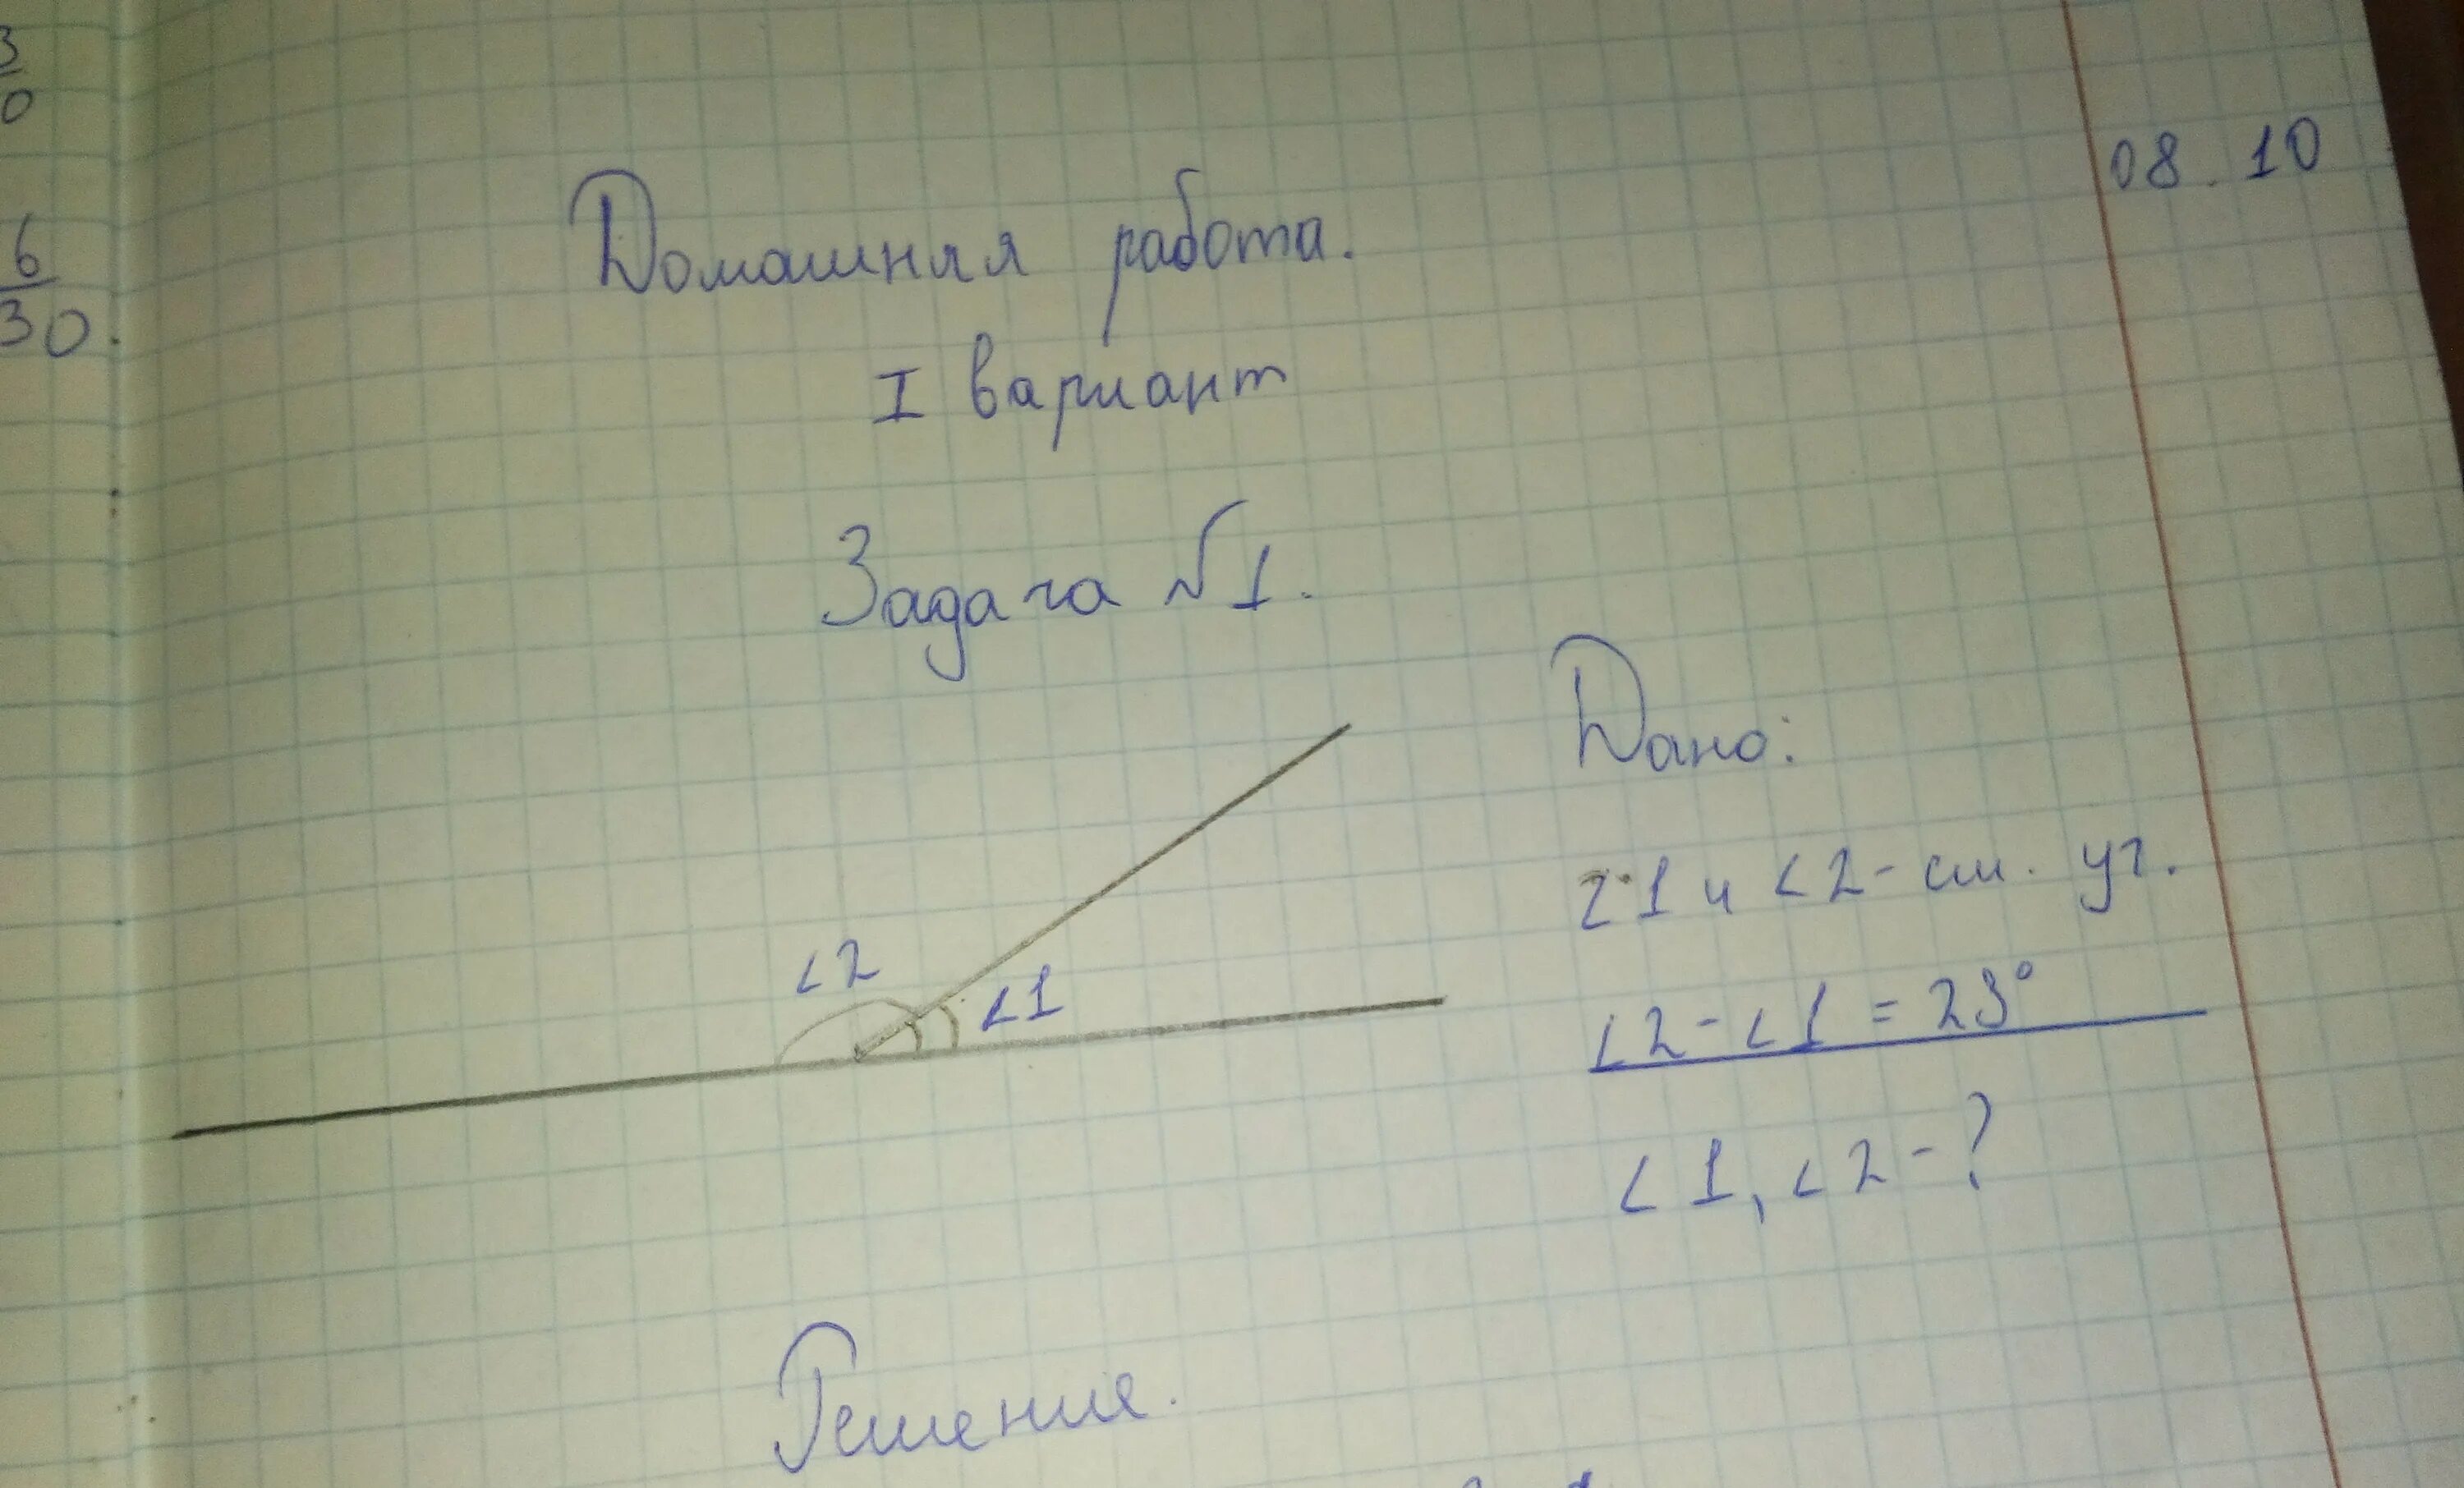 3
0
6
30.
08.10
Домашняя работа.
I вариант
Задача №1.
Дано:
∠1 и ∠2 - см. уг.
∠2 - ∠1 = 23°
∠1, ∠2 - ?
∠2
∠1
Решения.